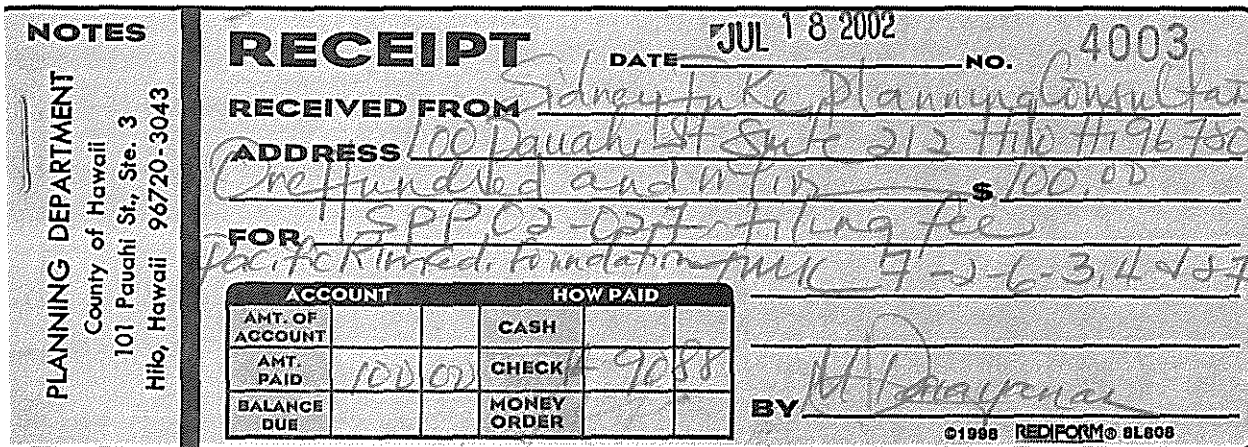 NOTES
PLANNING DEPARTMENT
County of Hawaii
101 Pauahi St., Ste. 3
Hilo, Hawaii 96720-3043
RECEIPT DATE JUL 18 2002 NO. 4003
RECEIVED FROM Sidney Fuke Planning Consultan
ADDRESS 100 Pauahi St Suite 212 Hilo Hi 96720
One Hundred and $ 100.00
FOR SPP 02-027, filing fee
Pacific Rim Foundation TMK 7-5-6-3,4
ACCOUNT HOW PAID
AMT. OF ACCOUNT CASH
AMT. PAID 100 00 CHECK # 9088
BALANCE DUE MONEY ORDER
BY M
©1998 REDIFORM® 8L808